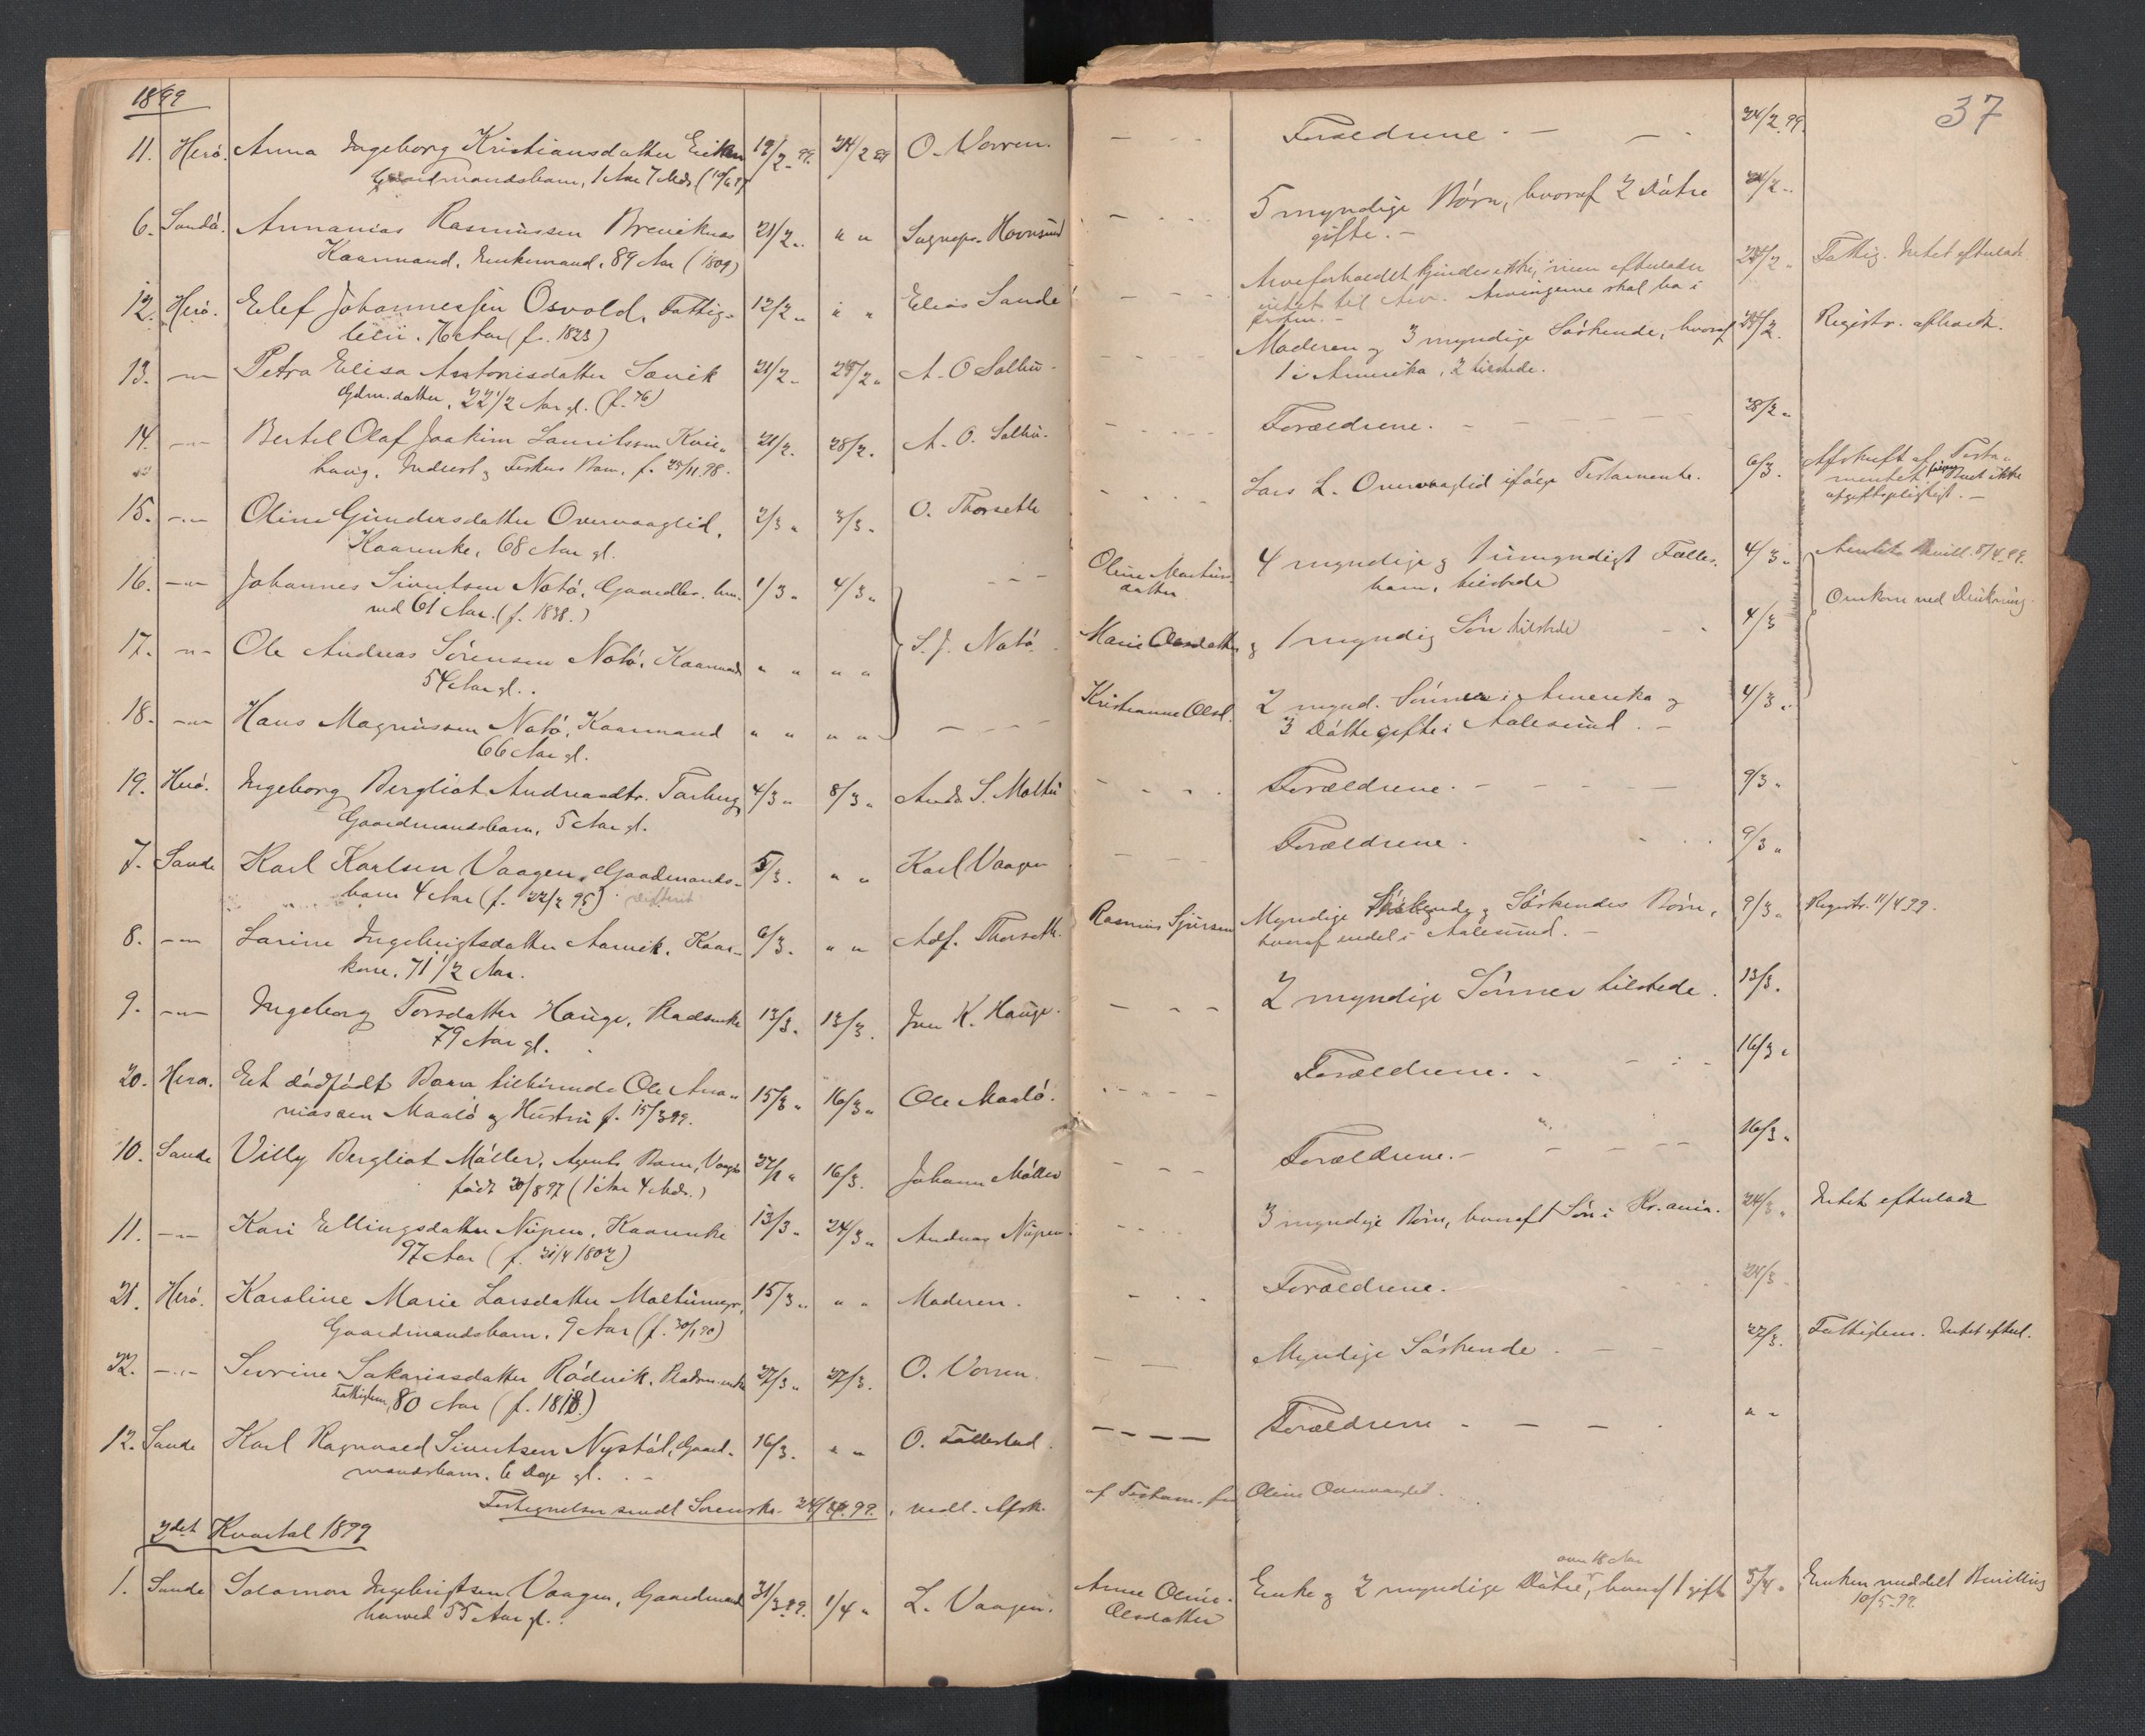 1899
37
11. Herö. Anna Ingeborg Kristiansdatter 19/2 99. 24/2 99 O. Vorren. - - - Forældrene. - - 24/2 99.
Gaardmandsbarn, 1 Aar 7 Mdr (
6. Sandö. Annanias Rasmussen Breviknes 21/2 „ „ „ Hovnsund - - - 5 myndige Börn, hvoraf 2 Döttre 24/2 „
Kaarmand, Enkemand, 89 Aar (1809) gifte. -
12. Herö. Elef Johannessen Osvold, Fattig- 12/2 „ „ „ Elias Sande - - - Arveforholdet kjendes ikke, men efterlader 24/2 „ Fattig. Intet efterladt
lem. 76 Aar (f. 1823) intet til Arv. Arvingerne skal bo i
13. -„- Petra Elisa Antonisdatter Sævik 21/2 „ 25/2 „ A. O. Salthu - - - Moderen og 3 myndige Söskende, hvoraf 25/2. Registr. afholdt.
Gdm.datter, 22 1/2 Aar gl. (f. 76) 1 i Amerika, 2 tilstede.
14. -„- Bertel Olaf Joakim Lauritssen Kvie- 21/2. 28/2. A. O. Salthu. - - - Forældrene. - - - 28/2 „
haug, Inderst og Fiskers Barn, f. 25/11 98.
15. -„- Oline Gundersdatter Overvaaglid, 2/3 „ 3/3 „ O. Thorseth - - - Lars L. Overvaaglid ifölge Testamente. 6/3. Afskrift af Testa-
Kaarenke, 68 Aar gl. mentet ikke
afgiftspligtigt. -
16. -„- Johannes Sivertsen Notö, Gaardbr. um- 1/3 „ 4/3 „ - - - Oline Martins- 4 myndige og 1 umyndigt Fælles- 4/3 „ Bevill. 5/4 99.
ved 61 Aar. (f. 1838.) datter barn, tilstede
17. -„- Ole Andreas Sörensen Notö, Kaarmand „ „ „ „ S. J. Notö. Marie Olesdatter og 1 myndig Sön tilstede - - 4/3 Omkom ved Drukning.
54 Aar gl.
18. -„- Hans Magnussen Notö, Kaarmand „ „ „ „ - - - Kristianne Olsd. 2 mynd. Sönner i Amerika og 4/3 „
66 Aar gl. 3 Döttre gifte i Aalesund. -
19. Herö. Ingeborg Bergliot Andreasdtr. 4/3 „ 8/3 „ Ands. S. Moltu - - - Forældrene. - - - 9/3 „
Gaardmandsbarn, 5 Aar gl.
7. Sande Karl Karlsen Vaagen, Gaardmands- 5/3. „ „ Karl Vaagen - - Forældrene. - - 9/3 „
barn 4 Aar (f. 22/2 95) difterit
8. -„- Larine Ingebrigtsdatter Aarvik, Kaar- 6/3. „ „ Adf. Thorseth. Rasmus Sjursen Myndige Söskende og Söskendes Börn, 9/3 „ Registr. 11/4 99.
kone, 71 1/2 Aar. hvoraf endel i Aalesund. -
9. -„- Ingeborg Torsdatter Hauge, Pladsenke 13/3. 13/3. Iver K. Hauge. - - - 2 myndige Sönner tilstede. 13/3.
79 Aar gl.
20. Herö. Et dödfödt Barn tilhörende Ole Ana- 15/3 „ 16/3 „ Ole Maalö. - - - Forældrene. - - 16/3 „
niassen Maalö og Hustru f. 15/3 99.
10. Sande Villy Bergliot Möller, Agents Barn, 27/1 „ 16/3. Johann Möller - - - Forældrene. - - - 16/3 „
födt 20/8 97 (1 Aar 4 Mdr.)
11. -„- Kari Ellingsdatter Nupen, Kaarenke 13/3 „ 24/3 „ Andreas Nupen. - - 3 myndige Börn, hvoraf 1 Sön i Kr.ania. 24/3 „ Intet efterladt
97 Aar (f. 21/4 1802)
21. Herö. Karoline Marie Larsdatter Moltumyr, 15/3 „ „ „ Moderen. - - - Forældrene. - - 24/3.
Gaardmandsbarn, 9 Aar (f. 30/1 90)
22. -„- Sevrine Sakariasdatter Rödvik, Pladsm.enke 27/3 „ 27/3. O. Vorren. - - Myndige Söskende. - - 27/3. Fattiglem. Intet efterl.
Fattiglem, 80 Aar (f. 1818.)
12. Sande Karl Ragnvald Sivertsen Nystöl, Gaard- 16/3. „ „ O. Tallestad. - - - - Forældrene - - - „ „
mandsbarn, 6 Dage gl. - -
Fortegnelsen sendt Sorenskr. 99. vedl. Afsk. af Testam. fra Oline Overvaaglid.
2det Kvartal 1899
1. Sande Salamon Ingebrigtsen Vaagen, Gaardmand 31/3 99. 1/4 „ L. Vaagen. Anne Oline Enke og 2 myndige Döttre over 18 Aar, hvoraf 1 gift 5/4 „ Enken meddelt Bevilling
henved 55 Aar gl. Olesdatter 10/5 99.